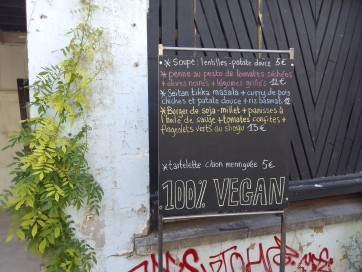 * Soupe : lentilles - patate douce 5€
* penne au pesto de tomates séchées
+ olives noires + légumes grillés 12€
* Seitan tikka masala + curry de pois
chiches et patate douce + riz basmati 12
* Burger de soja - millet + panisses à
l'huile de sauge + tomates confites +
flageolets verts au shoyu 13€
* tartelette citron meringuée 5€
100% VEGAN